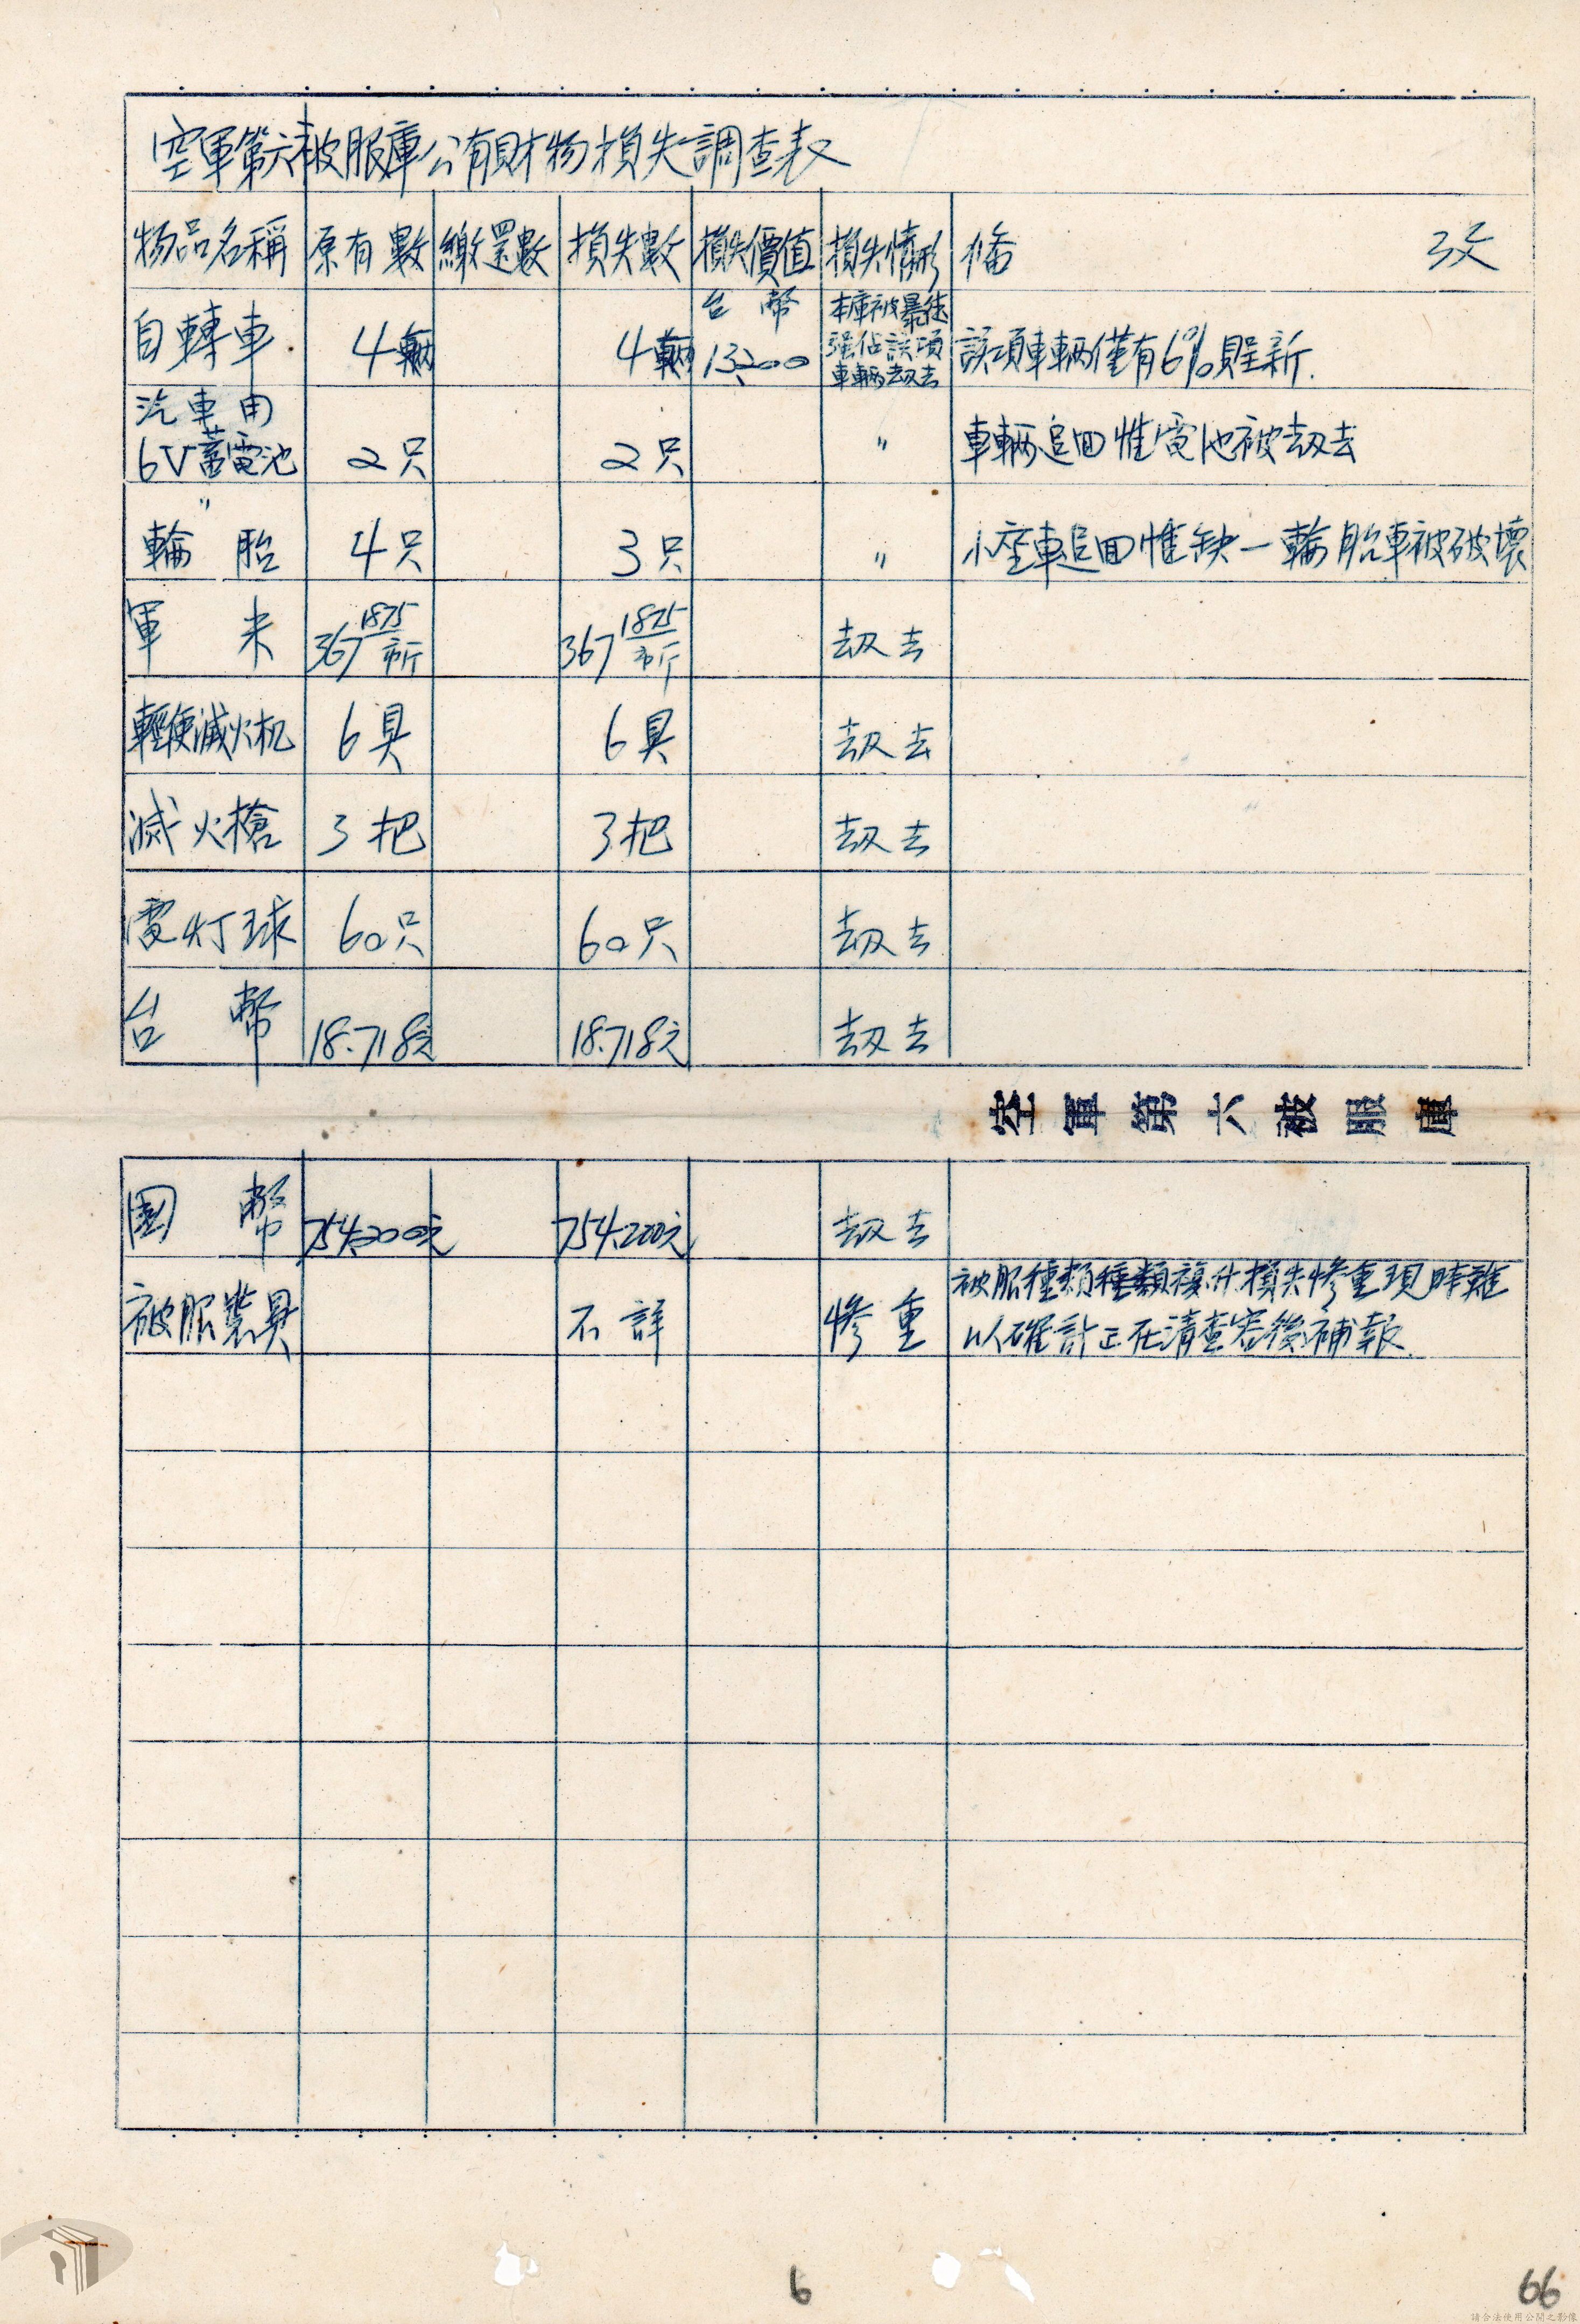 空軍第六被服庫公有財物損失調查表
物品名稱 原有數 繳還數 損失數 損失價值 損失情形 備 攷
自轉車 4輛 4輛 台幣13200 本庫被暴徒強佔該項車輛刼去 該項車輛僅有6%程新.
汽車用6V蓄電池 2只 2只 〃 車輛追回惟電池被刼去
〃輪胎 4只 3只 〃 小座車追回惟缺一輪胎車被破壞
軍米 367 1875市斤 367 1875市斤 刼去
輕便滅火机 6具 6具 刼去
滅火槍 3把 3把 刼去
電灯球 60只 60只 刼去
台幣 18.718元 18.718元 刼去
空軍第六被服庫
國幣 754.200元 754.200元 刼去
被服裝具 不詳 慘重 被服種類種類複什損失慘重現時難
以確計正在清查容後補報.
6
66
請合法使用公開之影像